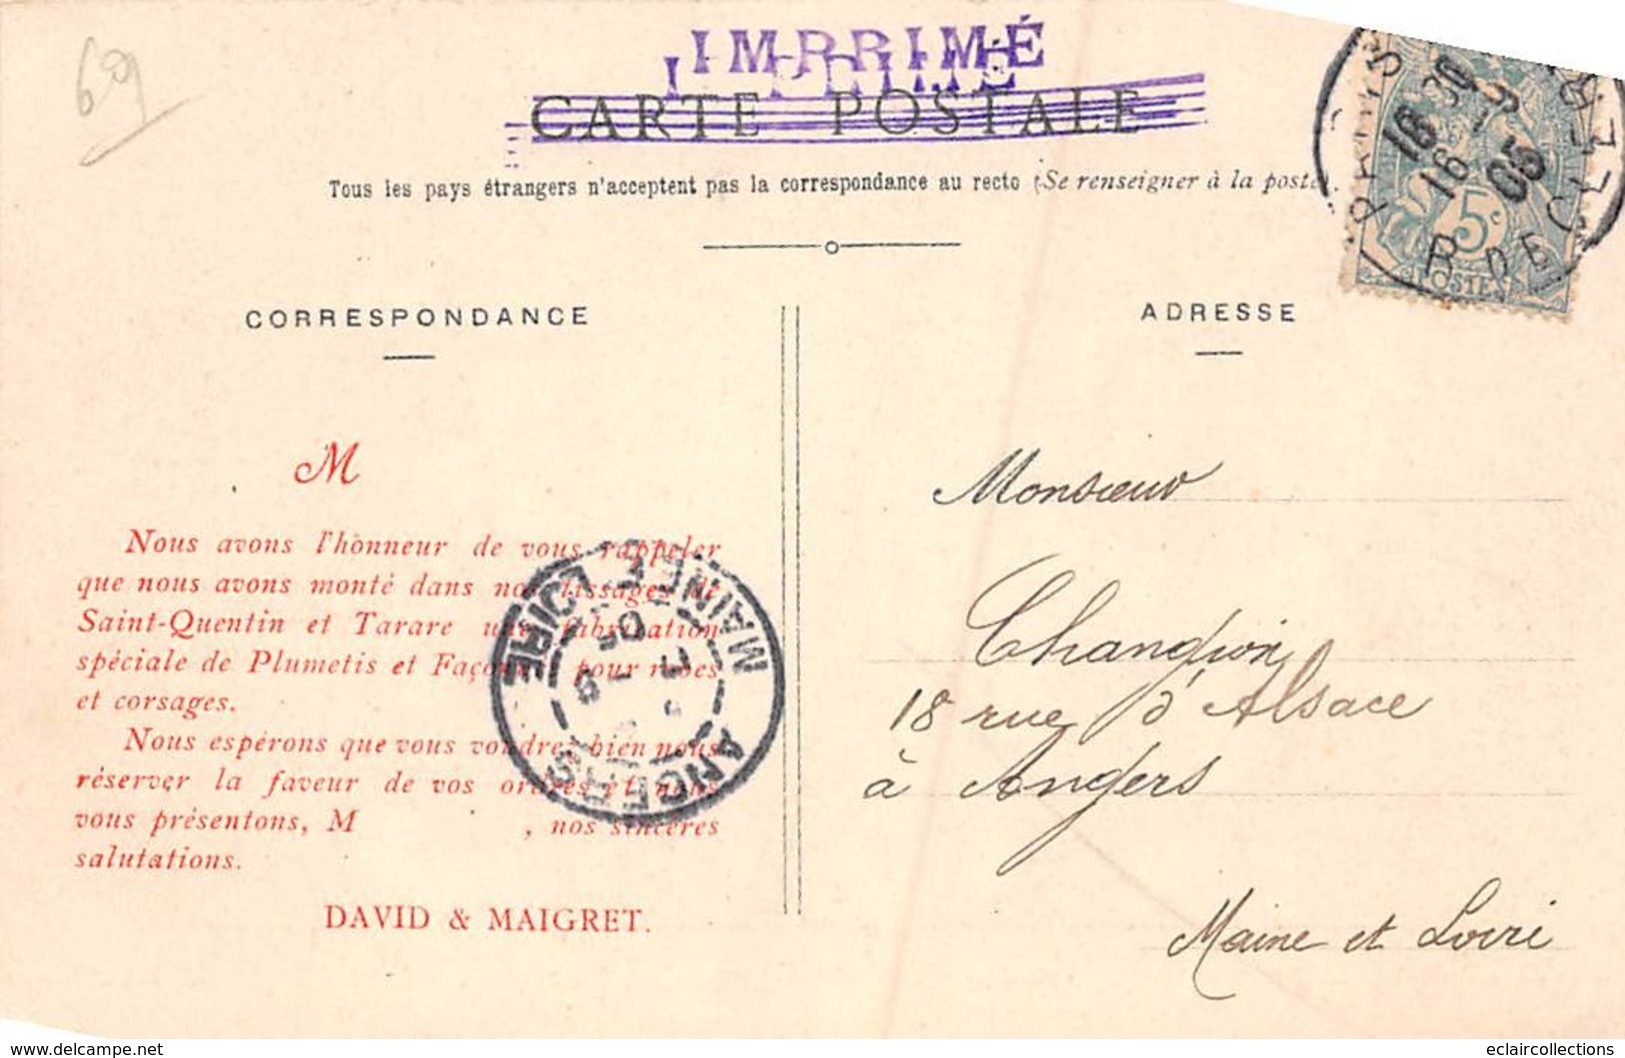 69
IMPRIMÉ
CARTE POSTALE
Tous les pays étrangers n'acceptent pas la correspondance au recto (Se renseigner à la poste.
PARIS
16 30
16 -9
05
R DE CLERY
5c
POSTES
CORRESPONDANCE
ADRESSE
M
Nous avons l'honneur de vous rappeler
que nous avons monté dans nos tissages de
Saint-Quentin et Tarare une fabrication
spéciale de Plumetis et Façonnés pour robes
et corsages.
Nous espérons que vous voudrez bien nous
réserver la faveur de vos ordres et nous
vous présentons, M , nos sincères
salutations.
DAVID & MAIGRET.
ANGERS
MAINE ET LOIRE
05
Monsieur
Champion
18 rue d'Alsace
à Angers
Maine et Loire
www.delcampe.net
eclaircollections